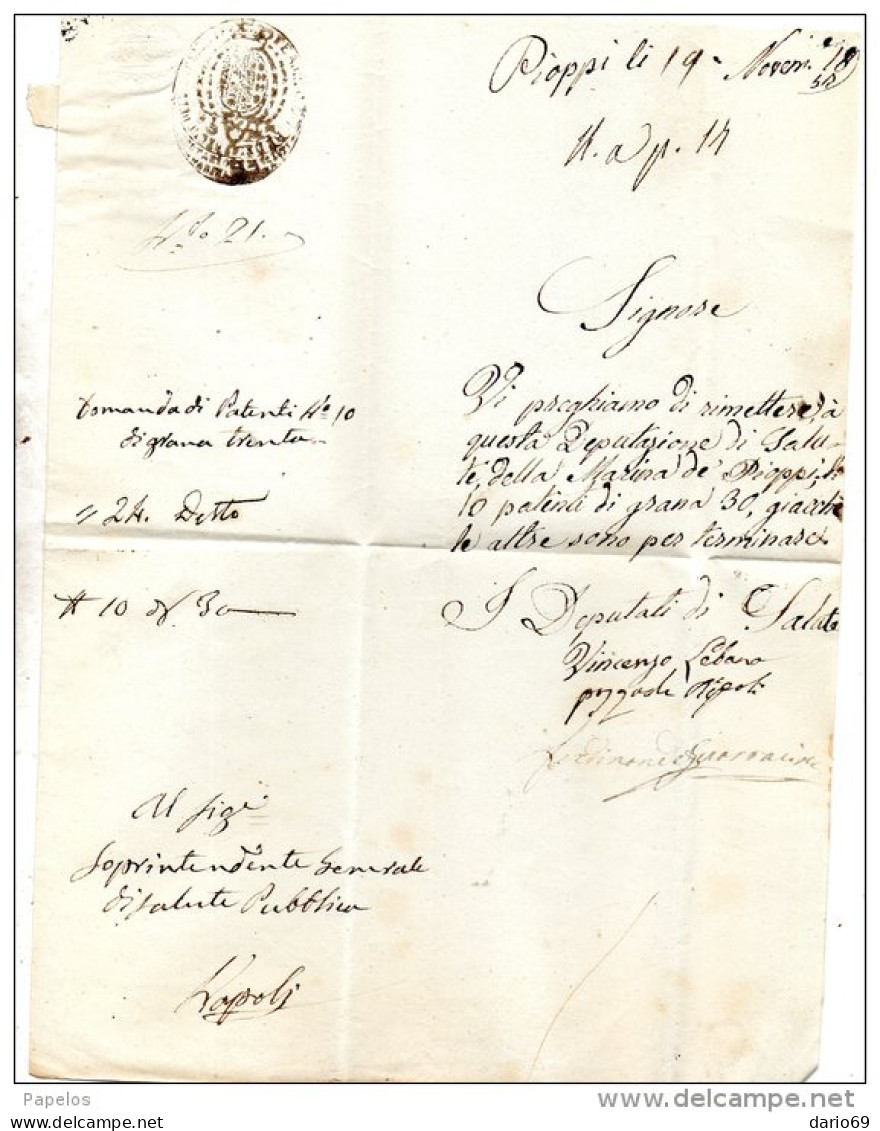 Pioppi li 19. Novem.e 18
52
N. a p. 14
N.ro 21.
Signore
Domanda di Patenti N.o 10
di grana trenta
Vi preghiamo di rimettere, à
questa Deputazione di Salu-
te, della Marina de' Pioppi,
10 patenti di grana 30, giacché
le altre sono per terminare.
" 24. Detto
N 10 30
I Deputati di Salute
Vincenzo
Ferdinando Guarracino
Al Sig.e
Soprintendente Generale
di Salute Pubblica
Napoli
Papelos
www.delcampe.net
dario69